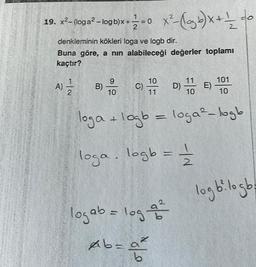 19. x² – (loga² – logb)x + 1/2 = 0 x² – (logb)x + 1/2 = 0
denkleminin kökleri loga ve logb dir.
Buna göre, a nın alabileceği değerler toplamı
kaçtır?
A) 1/2 B) 9/10 C) 10/11 D) 11/10 E) 101/10
loga + logb = loga² – logb
loga . logb = 1/2
logb² . logb =
logab = log a²/b
Ab = a²/b